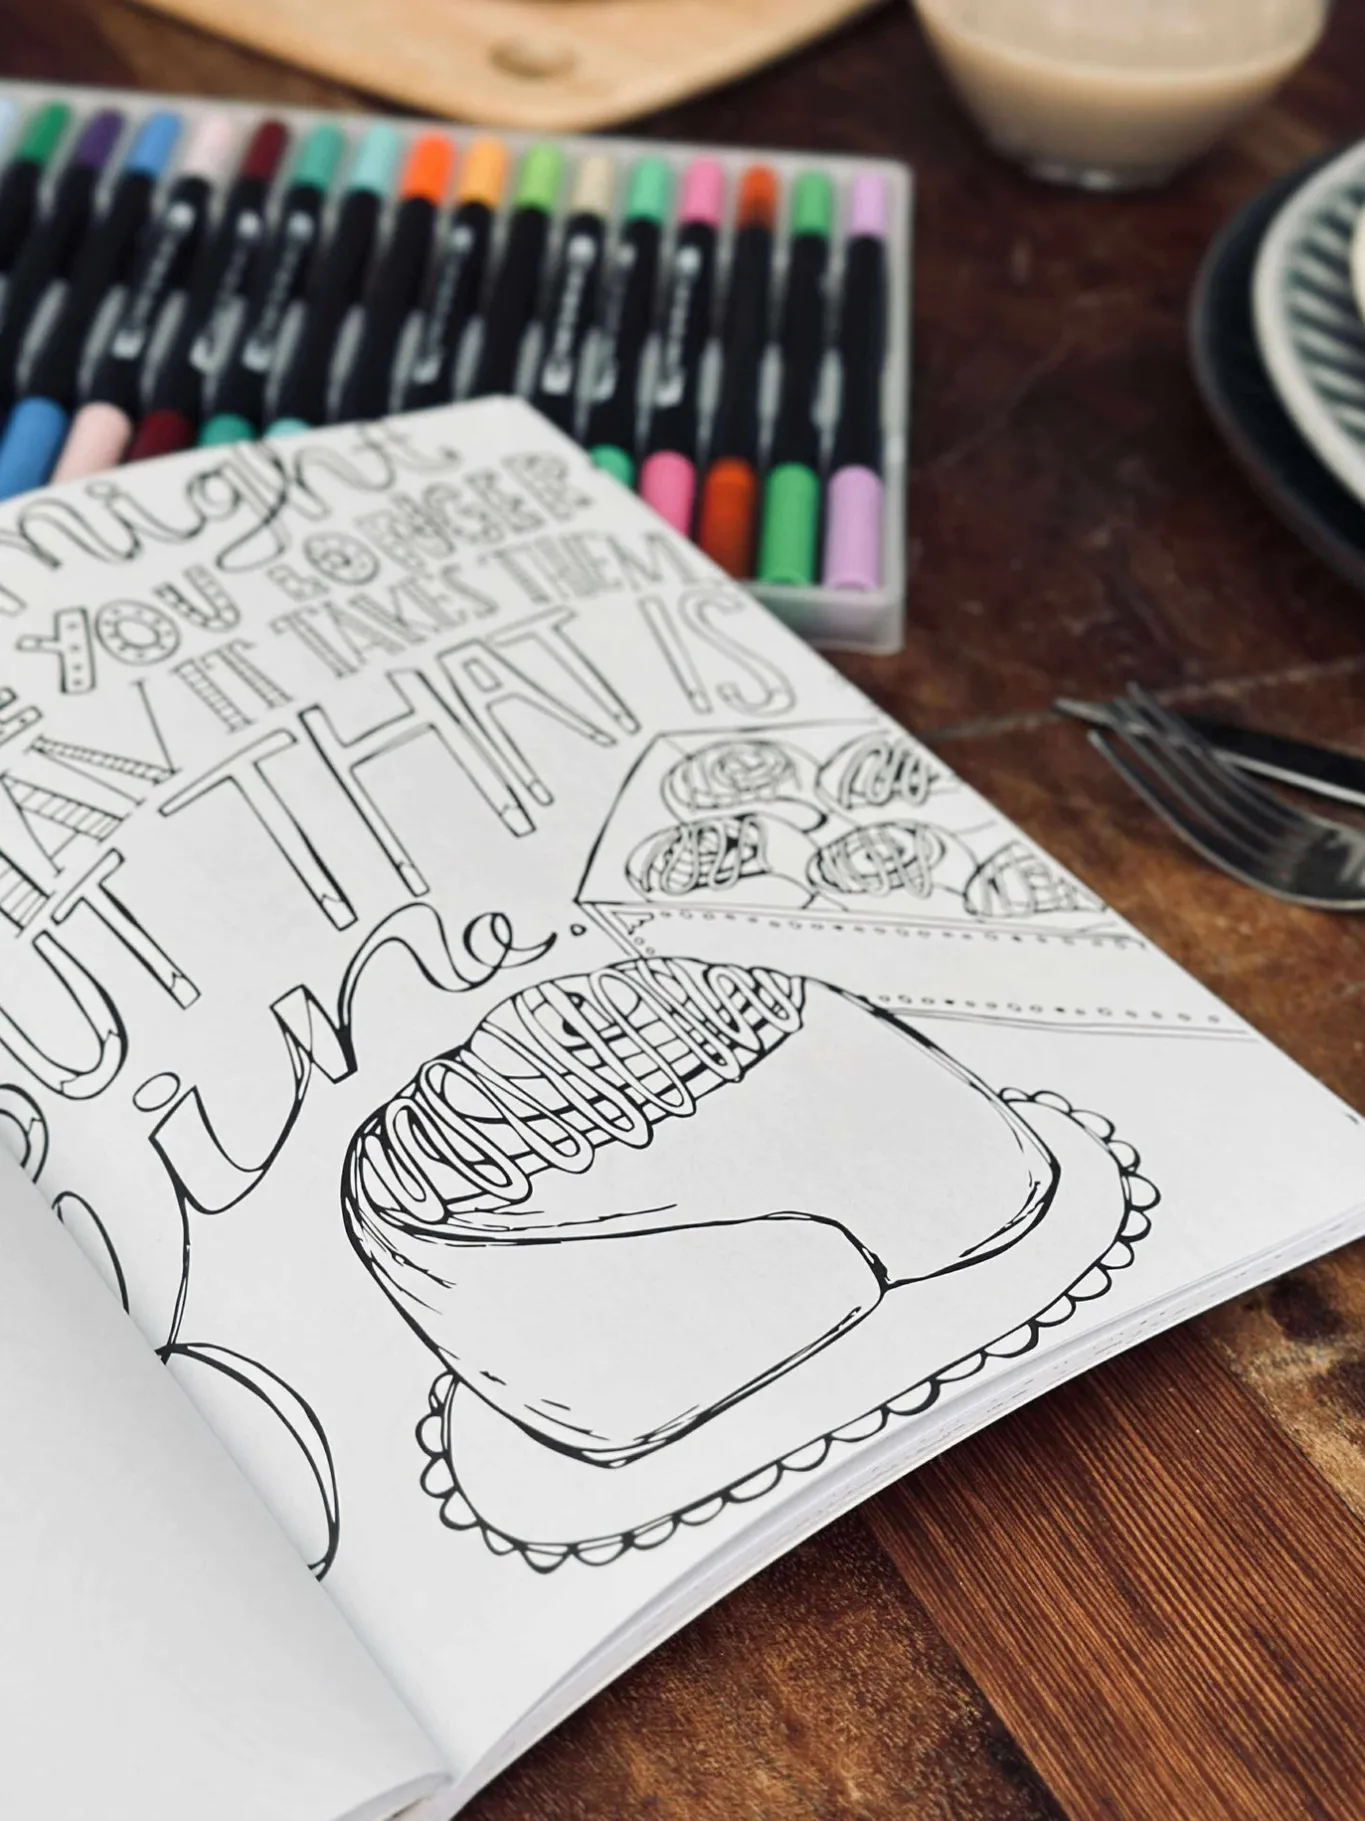 might
YOU LONGER
HAN IT TAKES THEM
UT THAT IS
ine.